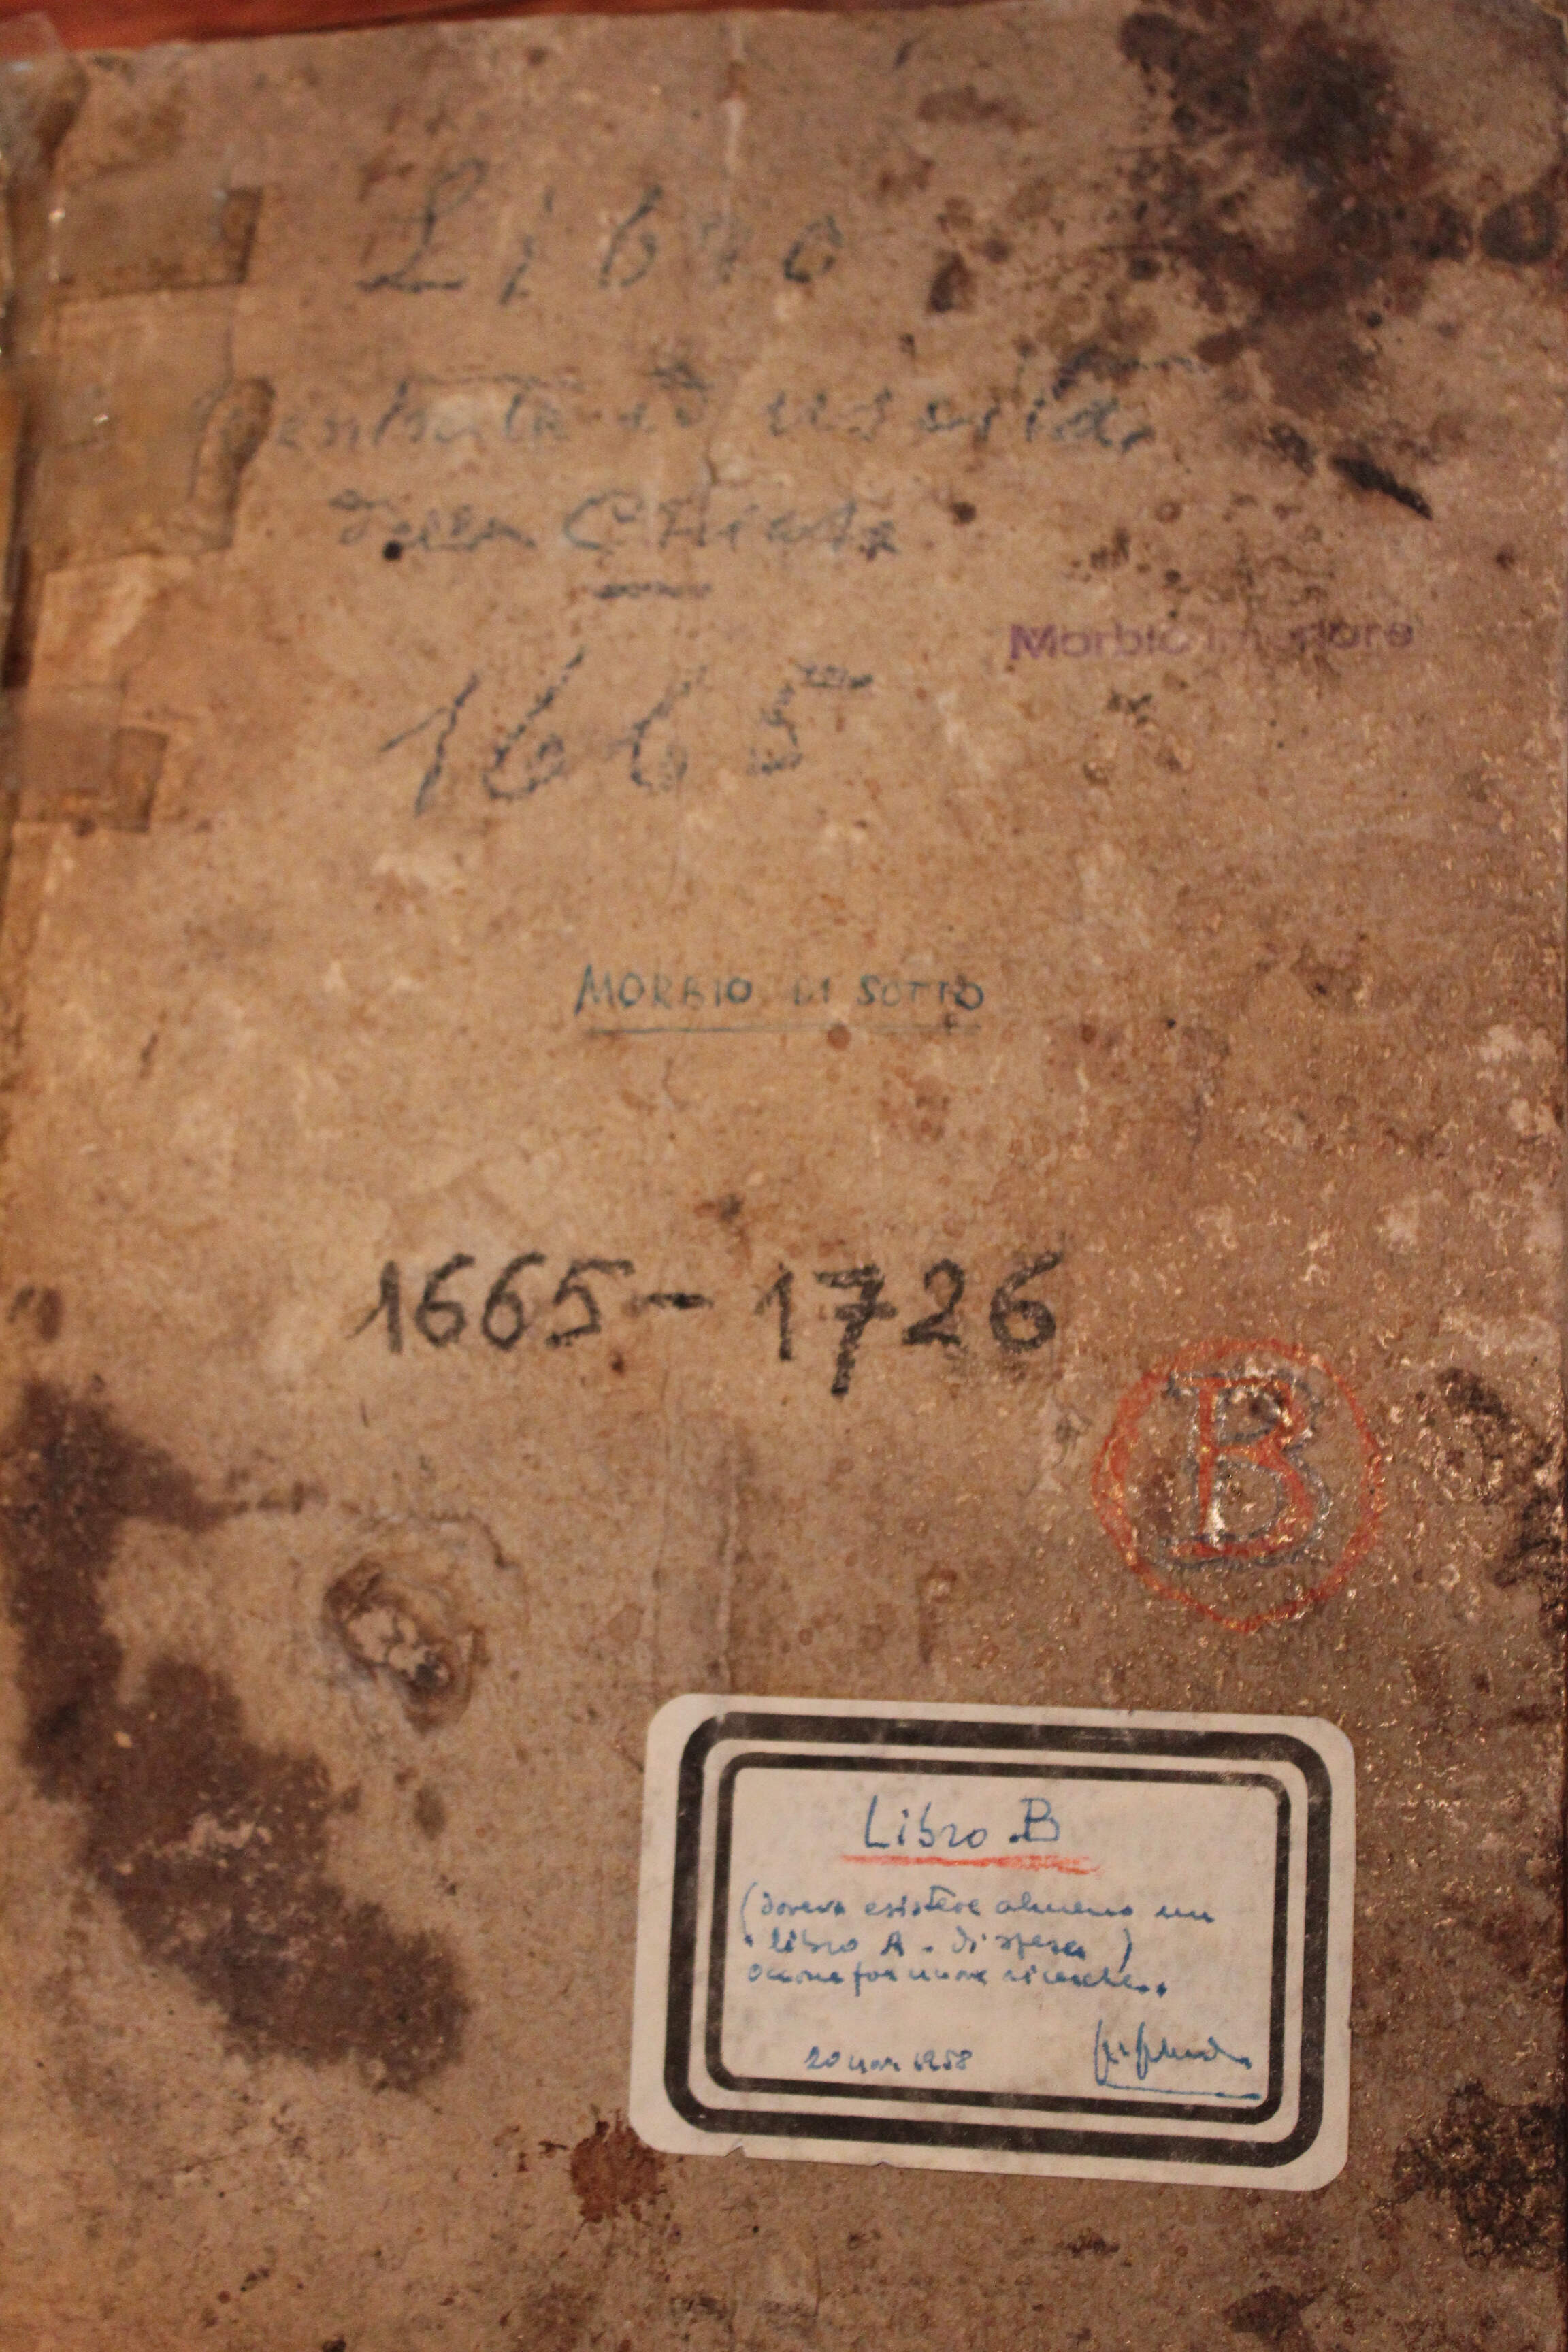 Libro
entrata ed uscita
della Chiesa
Morbio Inferiore
1665
MORBIO DI SOTTO
1665 - 1726
B
Libro B
(doveva esistere almeno un
libro A - di spesa)
nuove ricerche..
20 mar 1958